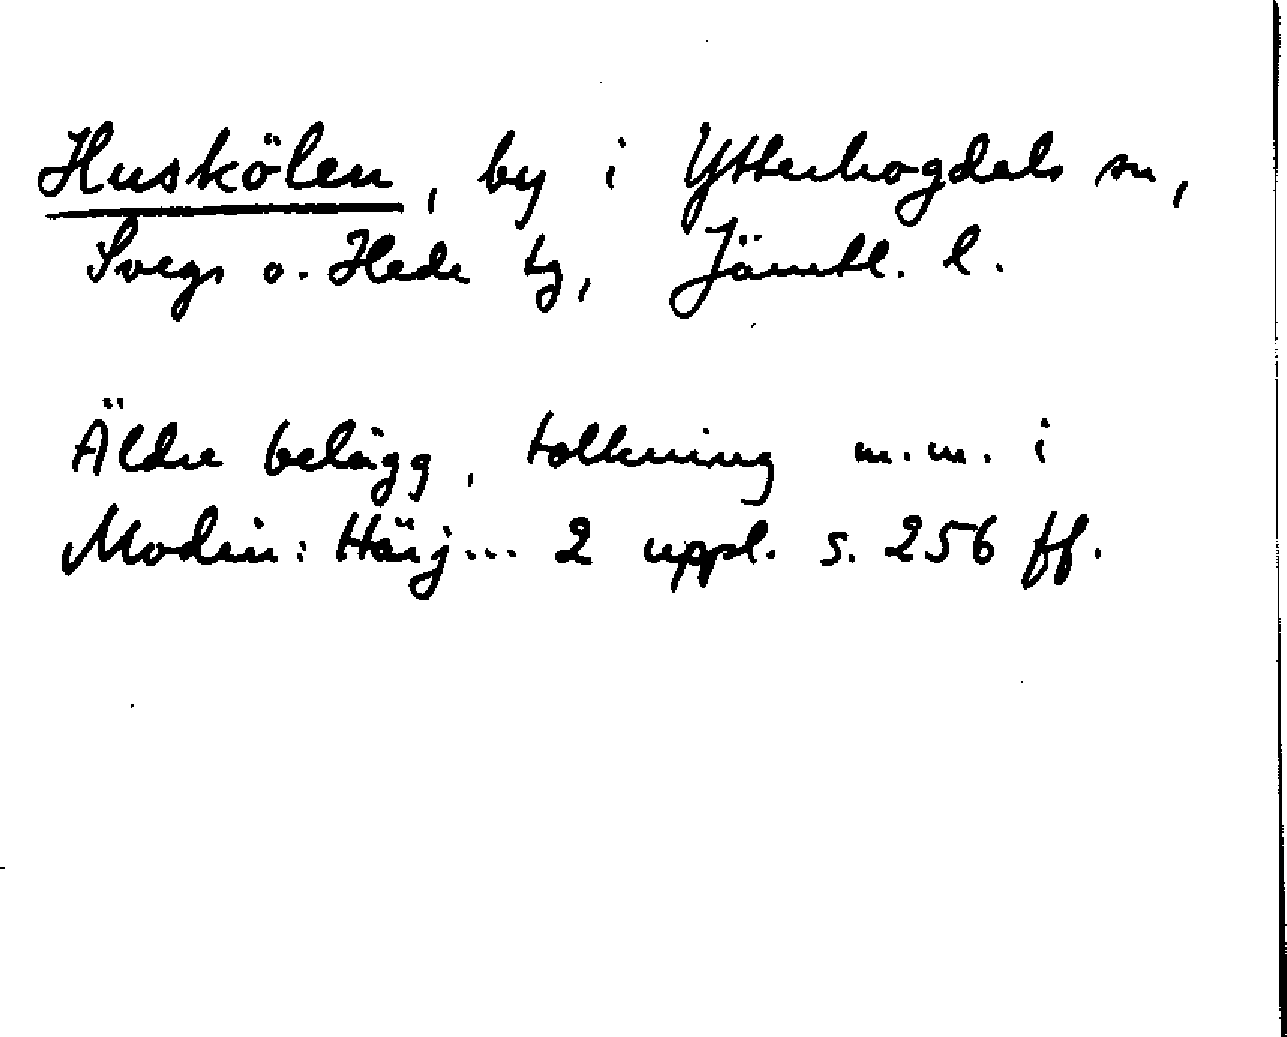 Huskölen, by i Ytterhogdals sn,
Svegs o. Hede tg, Jämtl. l.
Äldre belägg, tolkning m.m. i
Modin: Härj... 2 uppl. s. 256 ff.